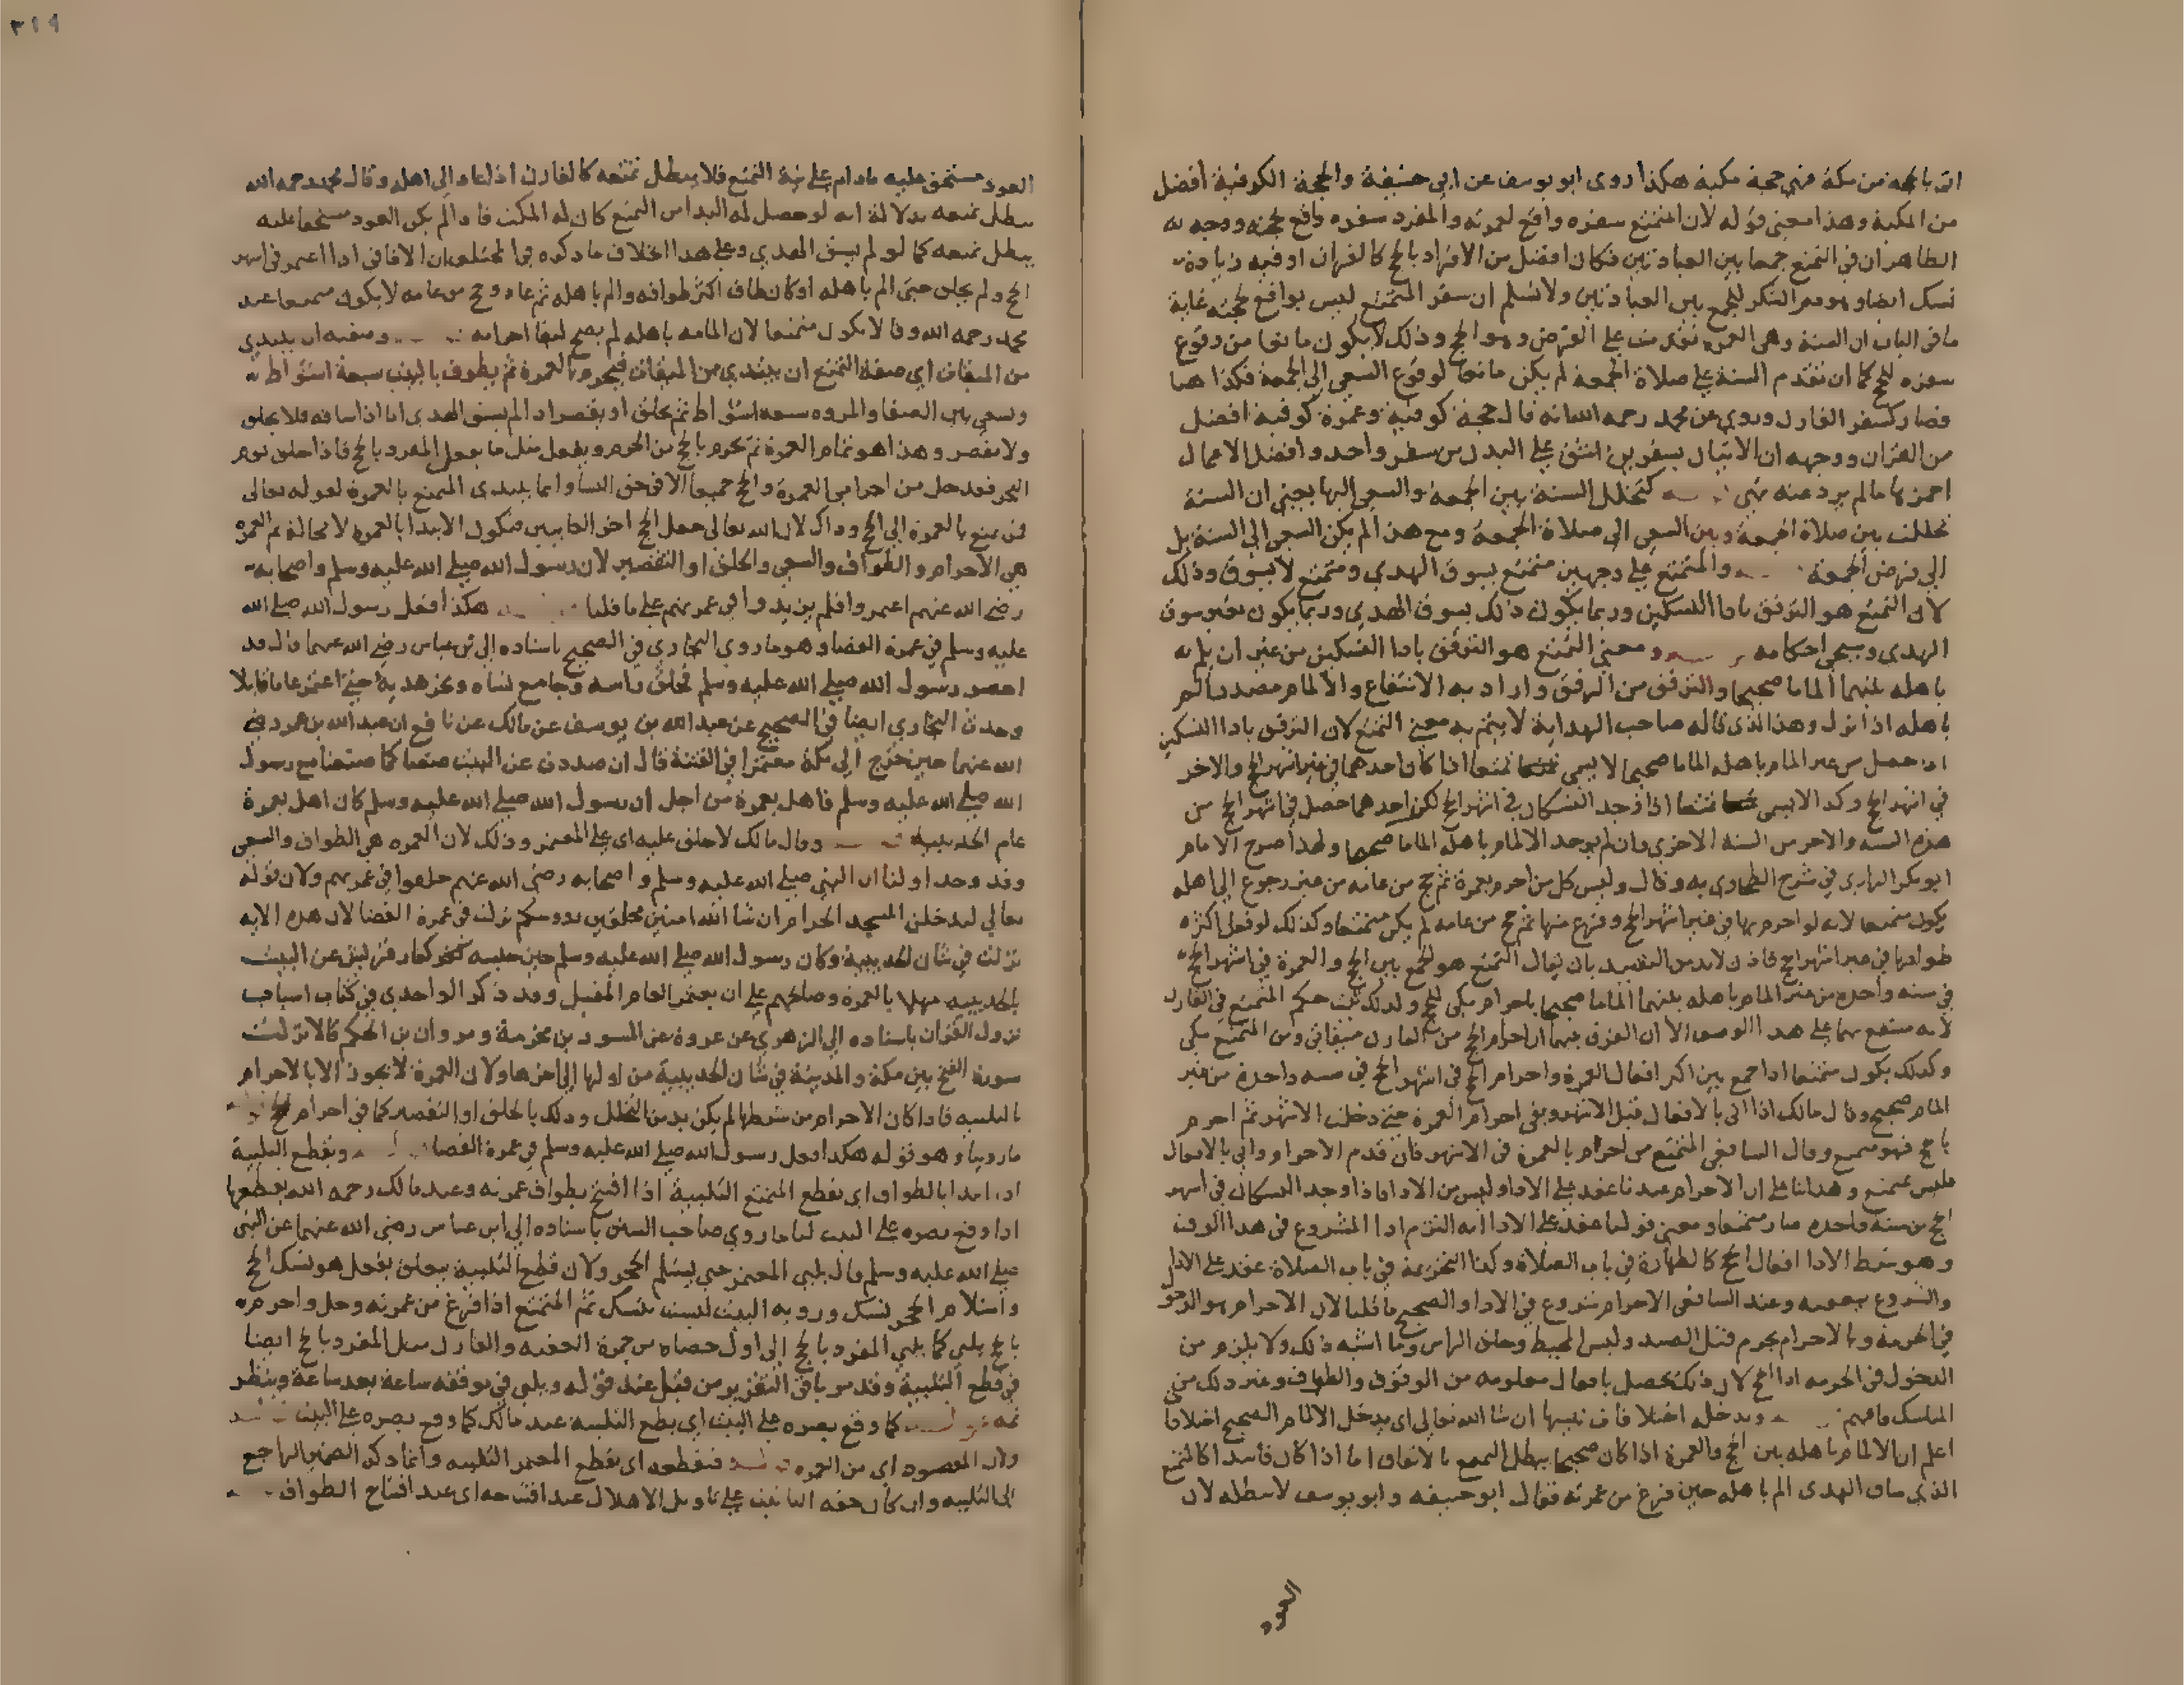 اتى بالحجة من مكة فهي حجة مكية هكذا روى ابو يوسف عن ابي حنيفة والحجة الكوفية أفضل
من المكية وهذا معنى قوله لان المتمتع سفره واقع لعمرته والمفرد سفره واقع لحجته ووجه
الظاهر ان في التمتع جمعا بين العبادتين فكان افضل من الافراد بالحج كالقران او فيه زيادة
نسك ايضا وهو دم الشكر للجمع بين العبادتين ولا نسلم ان سفر المتمتع ليس بواقع لحجته غاية
ما في الباب ان السنة وهي العمرة تقدمت على الفرض وهو الحج وذلك لا يكون مانعا من وقوع
سفره للحج كما ان تقدم السنة على صلاة الجمعة لم يكن مانعا لوقوع السعي الى الجمعة فكذا هنا
فصار كسفر القارن وروي عن محمد رحمه الله انه قال حجة كوفية وعمرة كوفية افضل
من القران ووجهه ان الاتيان بسفرين اشق على البدن من سفر واحد وافضل الاعمال
احمزها ما لم يرد عنه نهي كتخلل السنة بين الجمعة والسعي اليها يعني ان السنة
تخللت بين صلاة الجمعة وبين السعي الى صلاة الجمعة ومع هذا لم يكن السعي الى السنة بل
الى فرض الجمعة والمتمتع على وجهين متمتع يسوق الهدي ومتمتع لا يسوق وذلك
لان التمتع هو الترفق باداء النسكين وربما يكون ذلك بسوق الهدي وربما يكون بغير سوق
الهدي وسيجي احكامه ومعنى التمتع هو الترفق باداء النسكين من غير ان يلم
باهله بينهما الماما صحيحا والترفق من الرفق واراد به الانتفاع والالمام مصدر الم
باهله اذا نزل وهذا الذي قاله صاحب الهداية لا يتم به معنى التمتع لان الترفق باداء النسكين
اذا حصل من غير المام باهله الماما صحيحا لا يسمى تمتعا اذا كان احدهما في غير اشهر الحج والاخر
في اشهر الحج وكذا لا يسمى تمتعا اذا وجد النسكان في اشهر الحج لكن احدهما حصل في اشهر الحج من
هذه السنة والاخر من السنة الاخرى وان لم يوجد الالمام باهله الماما صحيحا ولهذا صرح الامام
ابو بكر الرازي في شرح الطحاوي به وقال وليس كل من احرم بعمرة ثم حج من عامه من غير رجوع الى اهله
يكون متمتعا لانه لو احرم بها في غير اشهر الحج وفرغ منها ثم حج من عامه لم يكن متمتعا وكذلك لو فعل اكثر
طوافها في غير اشهر الحج فاذن لا بد من التقييد بان يقال التمتع هو الجمع بين الحج والعمرة في اشهر الحج
في سنة واحدة من غير المام باهله بينهما الماما صحيحا باحرام مكي للحج ولذلك ثبت حكم المتمتع في القارن
لانه متمتع بهما على هذا الوصف الا ان الفرق بينهما ان احرام الحج من القارن ميقاتي ومن المتمتع مكي
وكذلك يكون متمتعا اذا جمع بين اكثر افعال العمرة واحرام الحج في اشهر الحج في سنة واحدة من غير
المام صحيح وقال مالك اذا اتى بالافعال قبل الاشهر وبقي احرام العمرة حتى دخلت الاشهر ثم احرم
بالحج فهو متمتع وقال الشافعي المتمتع من احرم بالعمرة في الاشهر فان قدم الاحرام واتى بالافعال
فليس بمتمتع وهذا بناء على ان الاحرام عندنا عقد على الاداء وليس من الاداء فاذا وجد النسكان في اشهر
الحج من سنة واحدة صار متمتعا ومعنى قولنا عقد على الاداء انه التزم اداء المشروع في هذا الوقت
وهو شرط الاداء افعال الحج كالطهارة في باب الصلاة وكذا التحريمة في باب الصلاة عقد على الاداء
والشروع بعده وعند الشافعي الاحرام شروع في الاداء والصحيح ما قلنا لان الاحرام هو الدخول
في الحرمة وبالاحرام يحرم قتل الصيد ولبس المخيط وحلق الراس وما اشبه ذلك ولا يلزم من
الدخول في الحرمة اداء الحج لان ذلك يحصل بافعال معلومة من الوقوف والطواف وغير ذلك من
المناسك فافهم ويدخله اختلافات نبينها ان شاء الله تعالى اي يدخل الالمام الصحيح اختلافا
اعلم ان الالمام باهله بين الحج والعمرة اذا كان صحيحا يبطل التمتع بالاتفاق اما اذا كان فاسدا كالمتمتع
الذي ساق الهدى الم باهله حين فرغ من عمرته فقال ابو حنيفة وابو يوسف لا يبطله لان
العود
٣١٩
العود مستحق عليه ما دام على نية التمتع فلا يبطل تمتعه كالقارن اذا عاد الى اهله وقال محمد رحمه الله
يبطل تمتعه بدلالة انه لو حصل له البدا من التمتع كان له المكث فاذا لم يكن العود مستحقا عليه
يبطل تمتعه كما لو لم يسق الهدي وعلى هذا الخلاف ما ذكره في المختلف ان الافاقي اذا اعتمر في اشهر
الحج ولم يحلق حتى الم باهله او كان طاف اكثر طوافه والم باهله ثم عاد وحج من عامه لا يكون متمتعا عند
محمد رحمه الله وقالا يكون متمتعا لان المامه باهله لم يصح لبقاء احرامه وصفته ان يبتدي
من الميقات اي صفة التمتع ان يبتدي من الميقات فيحرم بالعمرة ثم يطوف بالبيت سبعة اشواط
ويسعى بين الصفا والمروة سبعة اشواط ثم يحلق او يقصر اذا لم يسق الهدى اما اذا ساقه فلا يحلق
ولا يقصر وهذا هو تمام العمرة ثم يحرم بالحج من الحرم ويفعل مثل ما يفعل المفرد بالحج فاذا حلق يوم
النحر فقد حل من احرامي العمرة والحج جميعا الا في حق النسا وانما يبتدى المتمتع بالعمرة لقوله تعالى
فمن تمتع بالعمرة الى الحج وذاك لان الله تعالى جعل الحج اخر الغايتين فيكون الابتدا بالعمرة لا محالة ثم العمرة
هي الاحرام والطواف والسعي والحلق او التقصير لان رسول الله صلى الله عليه وسلم واصحابه
رضي الله عنهم اعتمروا فلم يزيدوا في عمرتهم على ما قلنا هكذا فعل رسول الله صلى الله
عليه وسلم في عمرة القضا وهو ما روى البخاري في الصحيح باسناده الى ابن عباس رضي الله عنهما قال قد
احصر رسول الله صلى الله عليه وسلم فحلق راسه وجامع نساه ونحر هديه حتى اعتمر عاما قابلا
وحدث البخاري ايضا في الصحيح عن عبد الله بن يوسف عن مالك عن نافع ان عبد الله بن عمر رضي
الله عنهما حين خرج الى مكة معتمرا في الفتنة قال ان صددت عن البيت صنعنا كما صنعنا مع رسول
الله صلى الله عليه وسلم فاهل بعمرة من اجل ان رسول الله صلى الله عليه وسلم كان اهل بعمرة
عام الحديبية وقال مالك لا حلق عليه اى على المعتمر وذلك لان العمرة هي الطواف والسعي
وقد وجدا ولنا ان النبي صلى الله عليه وسلم واصحابه رضي الله عنهم حلقوا في عمرتهم ولان قوله
تعالى لتدخلن المسجد الحرام ان شا الله امنين محلقين رووسكم نزلت في عمرة القضا لان هذه الاية
نزلت في شان الحديبية وكان رسول الله صلى الله عليه وسلم حين حبسه كفار قريش عن البيت
بالحديبية مهلا بالعمرة وصالحهم على ان يعتمر العام المقبل وقد ذكر الواحدي في كتاب اسباب
نزول القران باسناده الى الزهري عن عروة عن المسور بن مخرمة ومروان بن الحكم قالا نزلت
سورة الفتح بين مكة والمدينة في شان الحديبية من اولها الى اخرها ولان العمرة لا تجوز الا بالاحرام
بالتلبية فاذا كان الاحرام من شرطها لم يكن بد من التحلل وذلك بالحلق او التقصير كما في احرام الحج
ما روينا وهو قوله هكذا فعل رسول الله صلى الله عليه وسلم في عمرة القضا ويقطع التلبية
اذا ابتدا بالطواف اي يقطع المتمتع التلبية اذا افتتح بطواف عمرته وعند مالك رحمه الله يقطعها
اذا وقع بصره على البيت لنا ما روي صاحب السنن باسناده الى ابن عباس رضي الله عنهما عن النبي
صلى الله عليه وسلم قال يلبي المعتمر حتى يستلم الحجر ولان قطع التلبية يتعلق بفعل هو نسك الحج
واستلام الحجر نسك وروية البيت ليست بنسك ثم المتمتع اذا فرغ من عمرته وحل واحرم
بالحج يلبي كما يلبي المفرد بالحج الى اول حصاة من جمرة العقبة والقارن مثل المفرد بالحج ايضا
في قطع التلبية وقد مر بافي التقرير من قبل عند قوله ويلبي في موقفه ساعة بعد ساعة وينظر
ثمه كما وقع بصره على البيت اي يقطع التلبية عند مالك كما وقع بصره على البيت
ولان المقصود اى من العمرة فيقطعه اى يقطع المعتمر التلبية وانما ذكر الضمير الراجع
الى التلبية وان كان حقه التانيث على تاويل الاهلال عند افتتاحه اى عند افتتاح الطواف